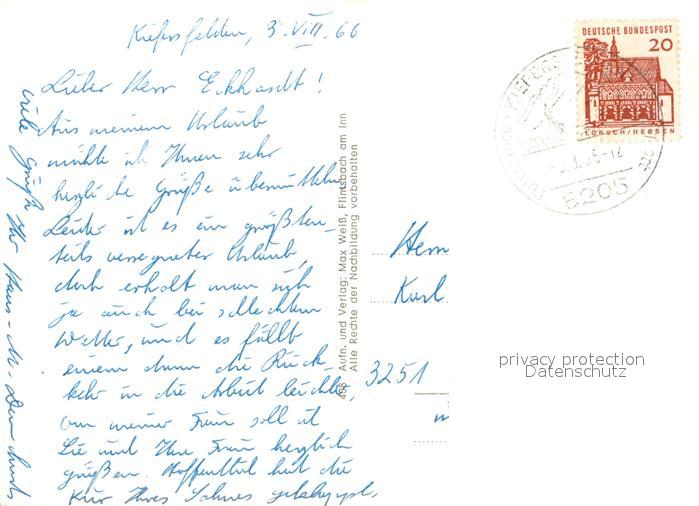 Kiefersfelden, 3. VIII. 66
Lieber Herr Eckhardt!
Aus meinem Urlaub
möchte ich Ihnen sehr
herzliche Grüße übermitteln.
Leider ist es ein größten-
teils verregneter Urlaub,
doch erholt man sich
ja auch bei schlechtem
Wetter, und es fällt
einem dann die Rück-
kehr in die Arbeit leichter,
von meiner Frau soll ich
Sie und Ihre Frau herzlich
grüßen. Hoffentlich hat die
Kur Ihres Sohnes geklappt.
viele Grüße Ihr Hans-
408 Aufn. und Verlag: Max Weiß, Flintsbach am Inn
Alle Rechte der Nachbildung vorbehalten
DEUTSCHE BUNDESPOST
20
LORSCH/HESSEN
KIEFERS
8205
Herrn
Karl
3251
privacy protection
Datenschutz